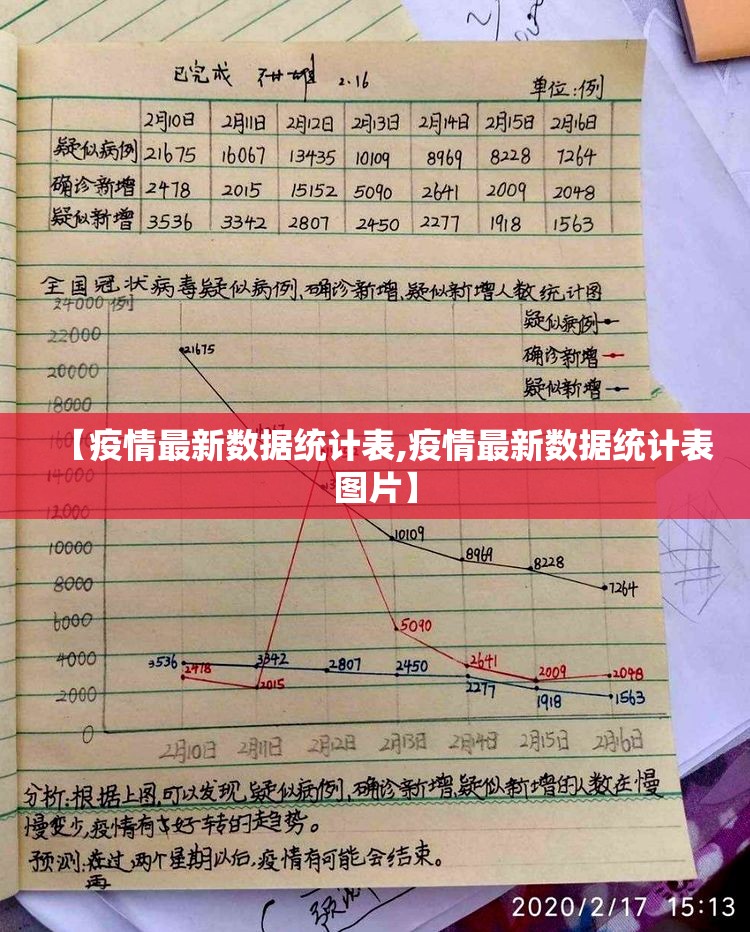 已完成 2.16
单位:例
2月10日 2月11日 2月12日 2月13日 2月14日 2月15日 2月16日
疑似病例 21675 16067 13435 10109 8969 8228 7264
确诊新增 2478 2015 15152 5090 2641 2009 2048
疑似新增 3536 3342 2807 2450 2277 1918 1563
全国冠状病毒疑似病例、确诊新增、疑似新增人数统计图
24000 例
疑似病例
22000
21675
确诊新增
20000
疑似新增
18000
【疫情最新数据统计表,疫情最新数据统计表
图片】
12000
10000
10109
8969
8228
8000
7264
6000
5090
4000
3536 2478 3342 2015 2807 2450 2641 2277 2009 1918 2048 1563
2000
0
2月10日 2月11日 2月12日 2月13日 2月14日 2月15日 2月16日
分析:根据上图,可以发现,疑似病例、确诊新增、疑似新增的人数在慢
慢变少,疫情有好转的走趋势。
预测:再过两个星期以后,疫情有可能会结束。
2020/2/17 15:13